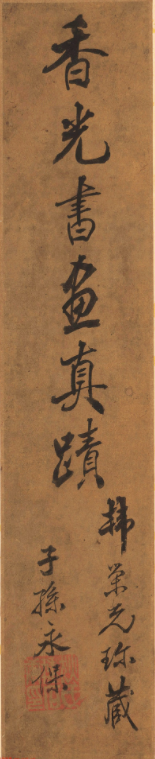 香光書画真蹟
韩榮光珍藏
子孫永保